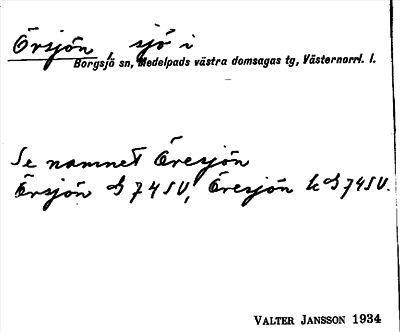 Örsjön, sjö i
Borgsjö sn, Medelpads västra domsagas tg, Västernorrl. l.
Se namnet Öresjön
Örsjön G 74 SV, Öresjön k G 74 SV.
VALTER JANSSON 1934